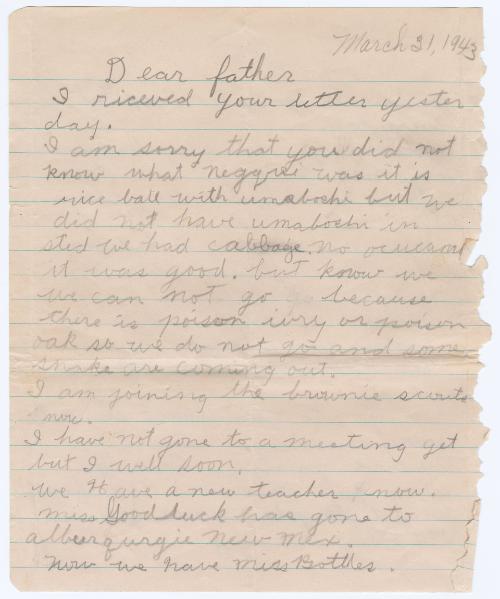 March 21, 1943
Dear father
I riceved your letter yester
day.
I am sorry that you did not
know what neggie was it is
rice ball with umaboshi but we
did not have umaboshi in
sted we had cabbage no
it was good. but know we
we can not go go because
there is poison ivry or poison
oak so we do not go and some
snake are coming out.
I am joining the brownie scouts
now.
I have not gone to a meeting yet
but I well soon.
we Have a new teacher now.
miss Goodluck has gone to
alberqurgie New Mex.
Now we have miss Bottles.